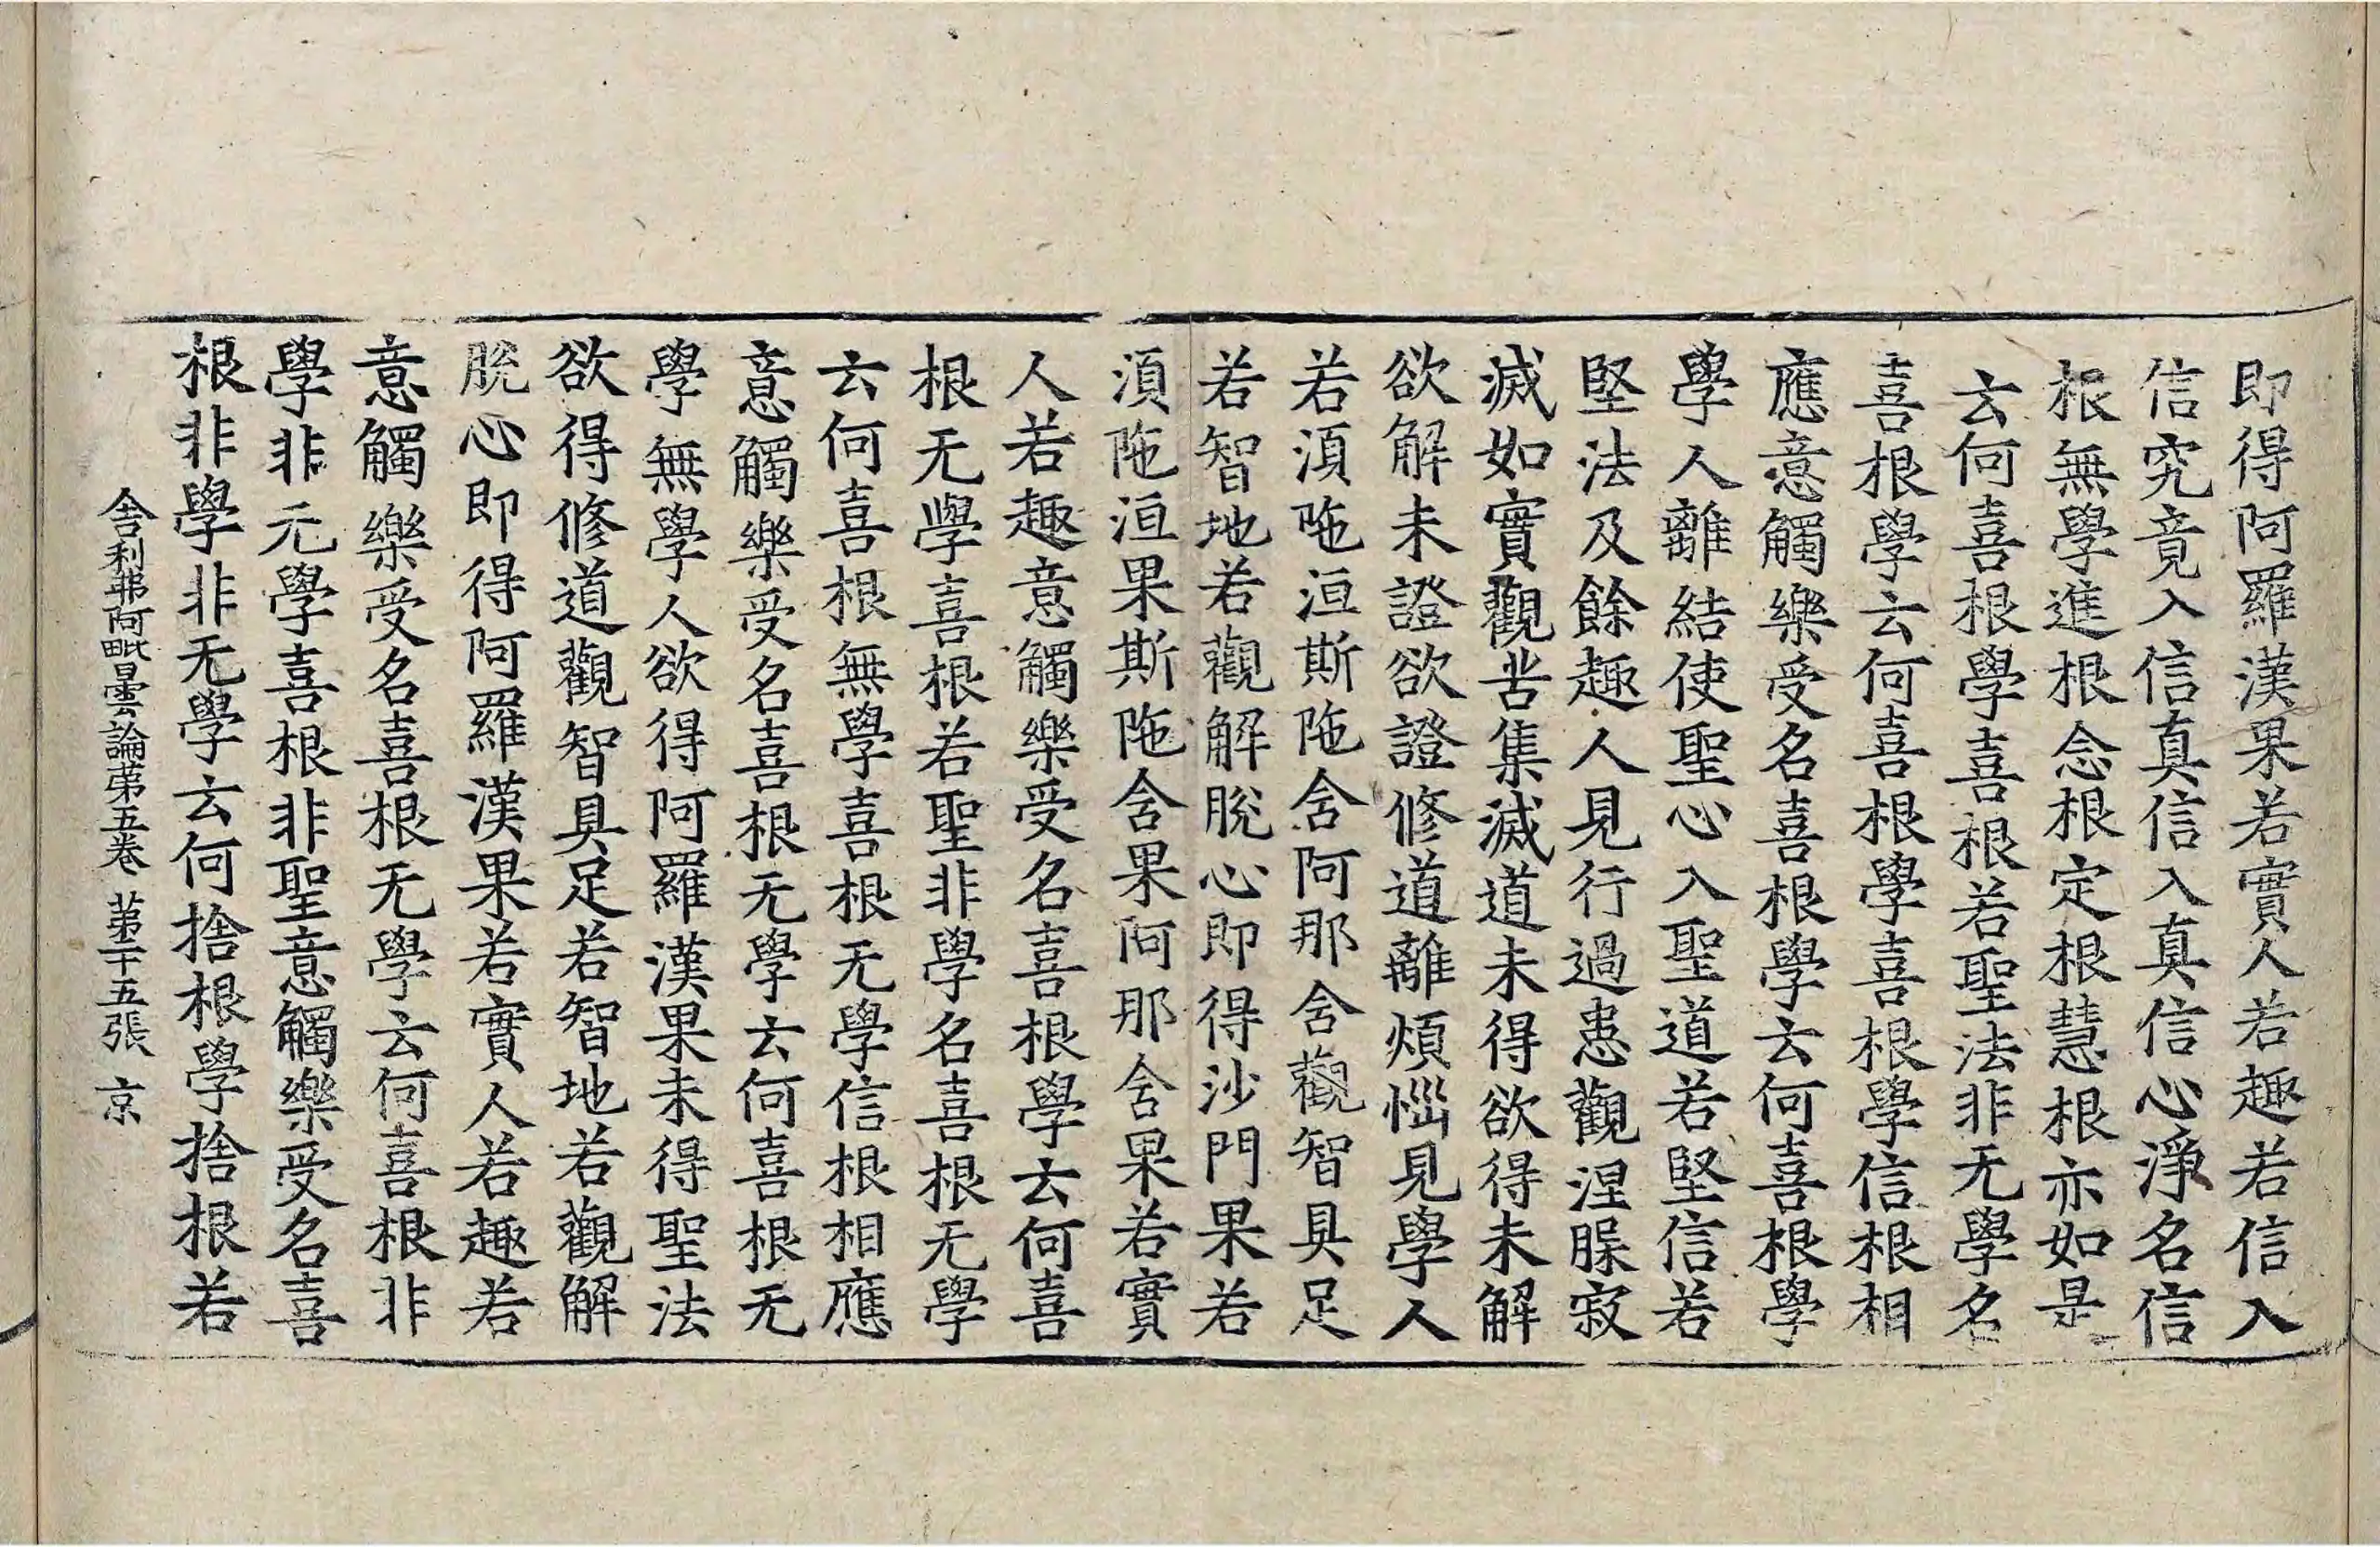 即得阿羅漢果若實人若趣若信入
信究竟入信真信入真信心淨名信
根無學進根念根定根慧根亦如是
云何喜根學喜根若聖法非无學名
喜根學云何喜根學喜根學信根相
應意觸樂受名喜根學云何喜根學
學人離結使聖心入聖道若堅信若
堅法及餘趣人見行過患觀涅槃寂
滅如實觀苦集滅道未得欲得未解
欲解未證欲證修道離煩惱見學人
若須陁洹斯陁含阿那含觀智具足
若智地若觀解脫心即得沙門果若
須陁洹果斯陁含果阿那含果若實
人若趣意觸樂受名喜根學云何喜
根无學喜根若聖非學名喜根无學
云何喜根無學喜根无學信根相應
意觸樂受名喜根无學云何喜根无
學無學人欲得阿羅漢果未得聖法
欲得修道觀智具足若智地若觀解
脫心即得阿羅漢果若實人若趣若
意觸樂受名喜根无學云何喜根非
學非无學喜根非聖意觸樂受名喜
根非學非无學云何捨根學捨根若
舍利弗阿毗曇論第五卷 第二十五張 京